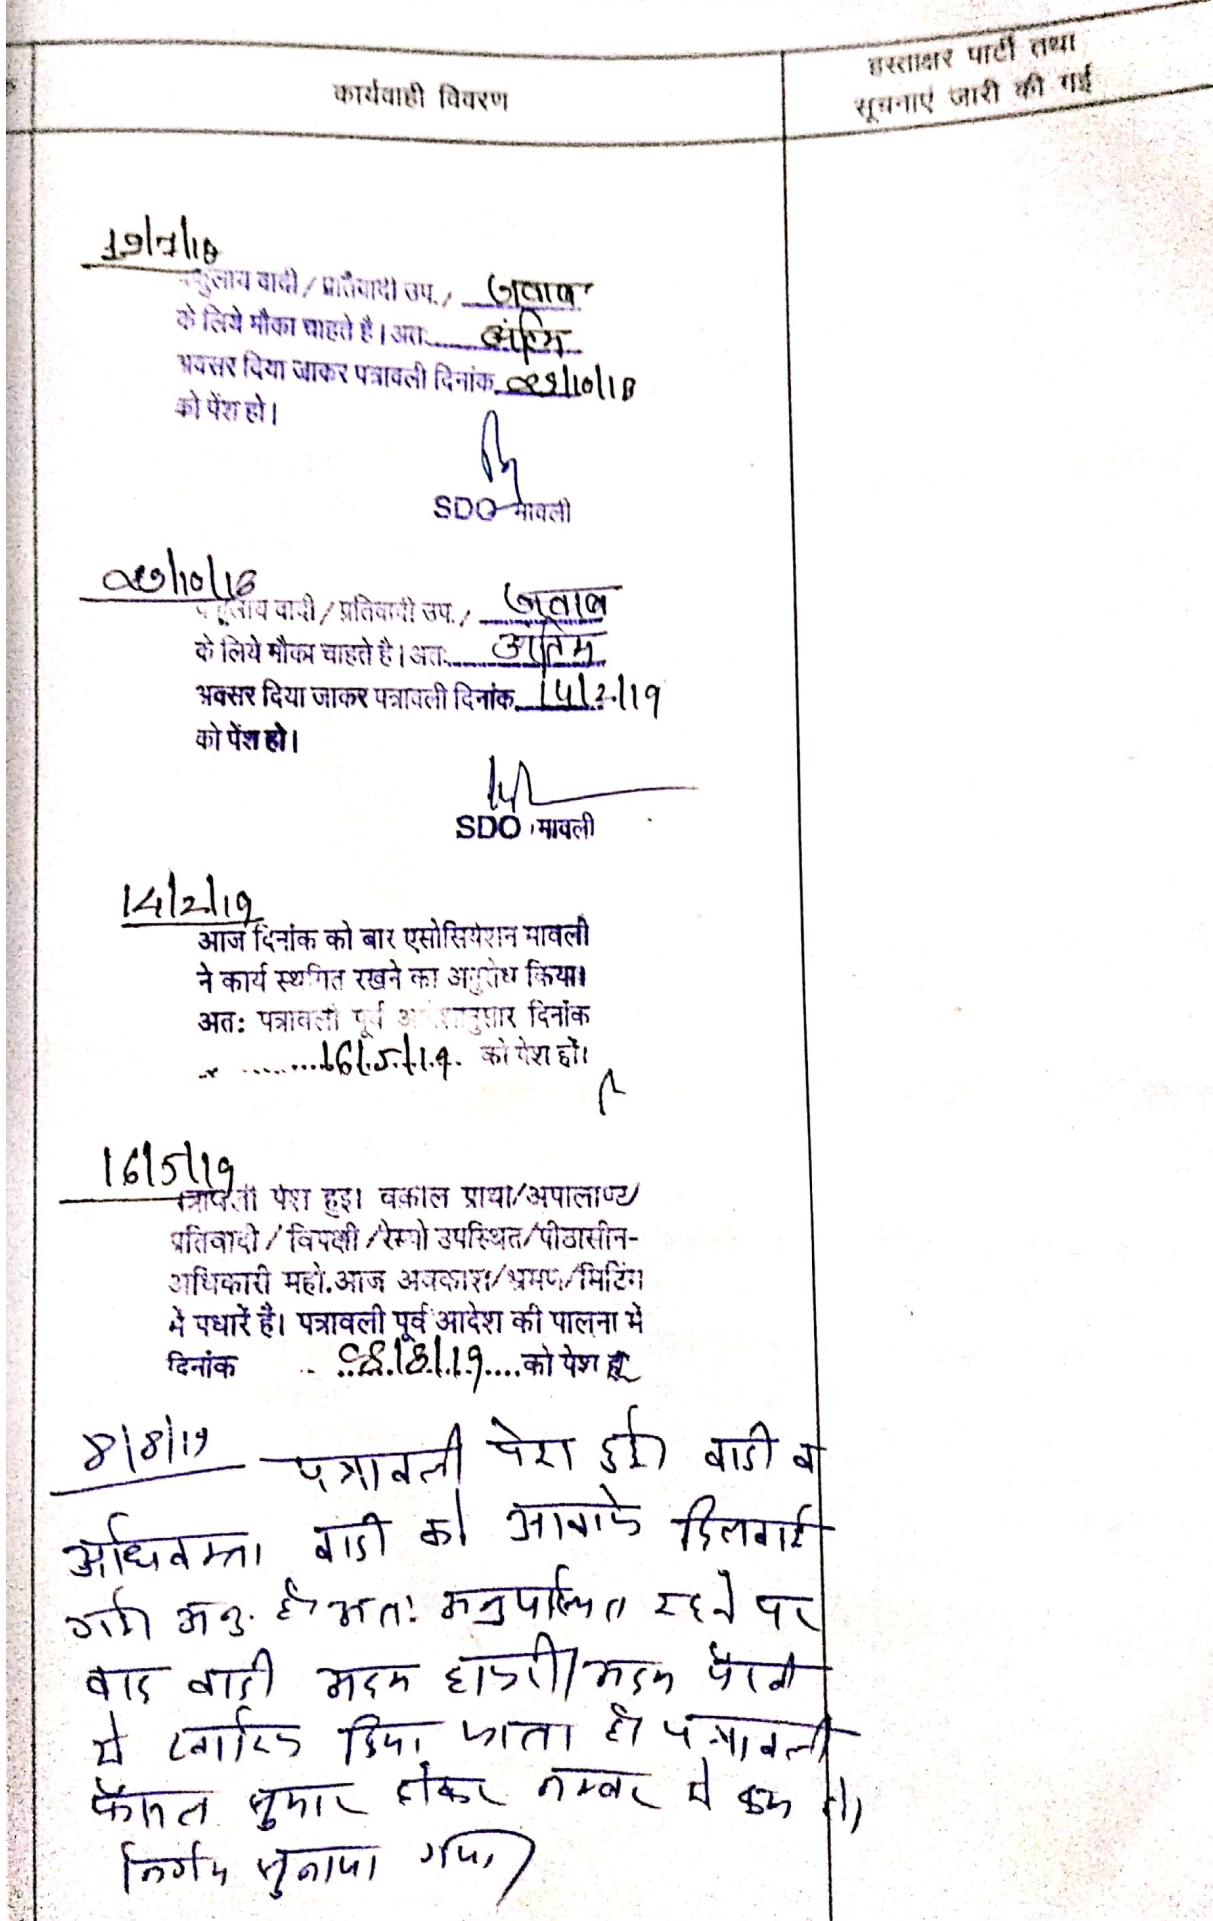 कार्यवाही विवरण
हस्ताक्षर पार्टी तथा
सूचनाएं जारी की गई
19/7/18
वकुलाय वादी / प्रतिवादी उप. / जवाब
के लिये मौका चाहते है। अतः अंतिम
अवसर दिया जाकर पत्रावली दिनांक 29/10/18
को पेंश हो।
SDO मावली
29/10/18
वकुलाय वादी / प्रतिवादी उप. / जवाब
के लिये मौका चाहते है। अतः अंतिम
अवसर दिया जाकर पत्रावली दिनांक 14/2/19
को पेंश हो।
SDO मावली
14/2/19
आज दिनांक को बार एसोसियेशन मावली
ने कार्य स्थगित रखने का अनुरोध किया।
अतः पत्रावली पूर्व आदेशानुसार दिनांक
16/5/19 को पेश हों।
16/5/19
पत्रावली पेश हुइ। वकील प्रार्थी/अपीलाण्ट/
प्रतिवादी / विपक्षी /रेस्पो उपस्थित/पीठासीन-
अधिकारी महो.आज अवकाश/भ्रमण/मिटिंग
में पधारें है। पत्रावली पूर्व आदेश की पालना में
दिनांक 08/8/19 को पेश हो
8/8/19 पत्रावली पेश हुई। वादी व
अधिवक्ता वादी को आवाजे दिलवाई
गयी अनु. है अतः अनुपस्थित रहने पर
वाद वादी अदम हाजरी/अदम पैरवी
मे खारिज किया जाता है। पत्रावली
फैसल सुमार होकर नम्बर से कम हो।
निर्णय सुनाया गया।